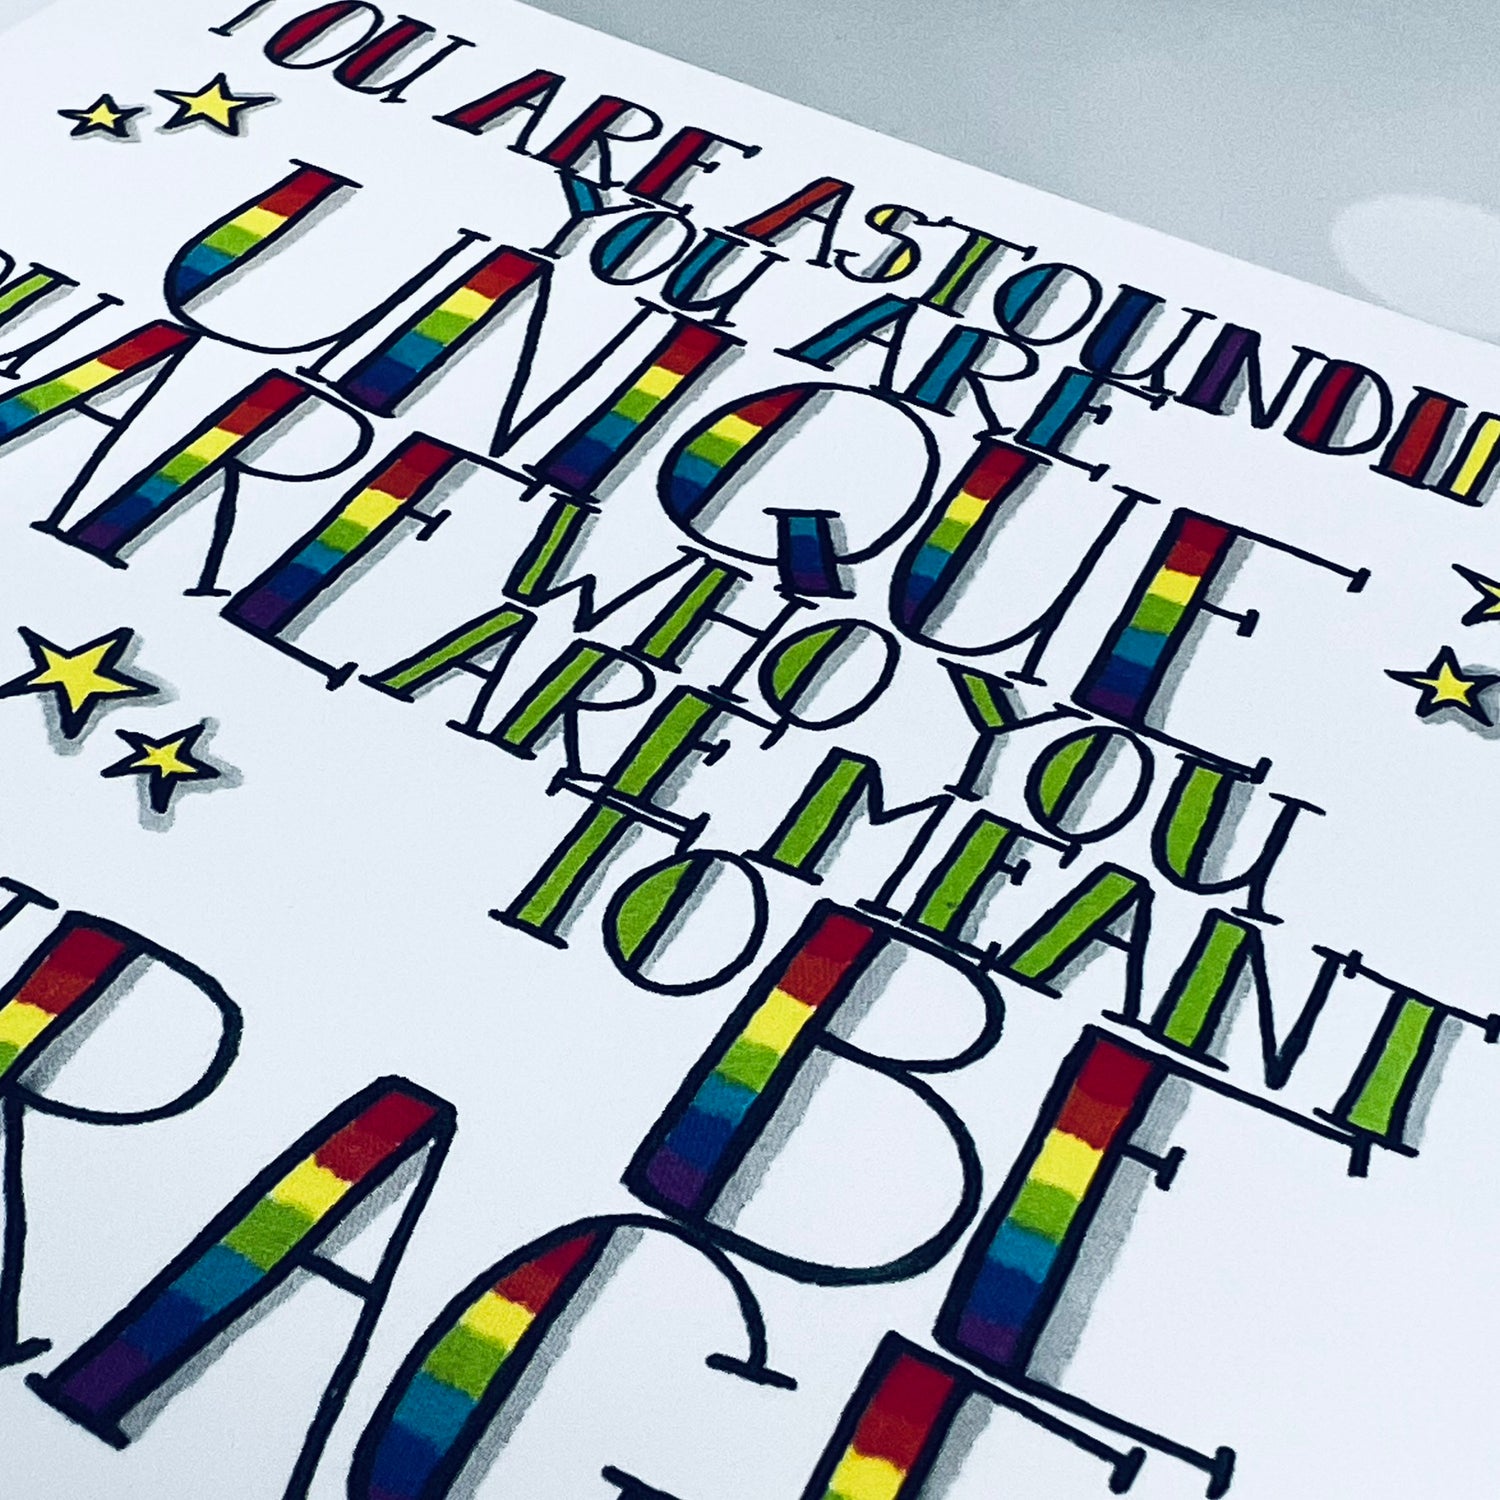 YOU ARE ASTOUNDI
YOU ARE
UNIQUE
ARE WHO YOU
ARE MEANT
TO BE
RACE